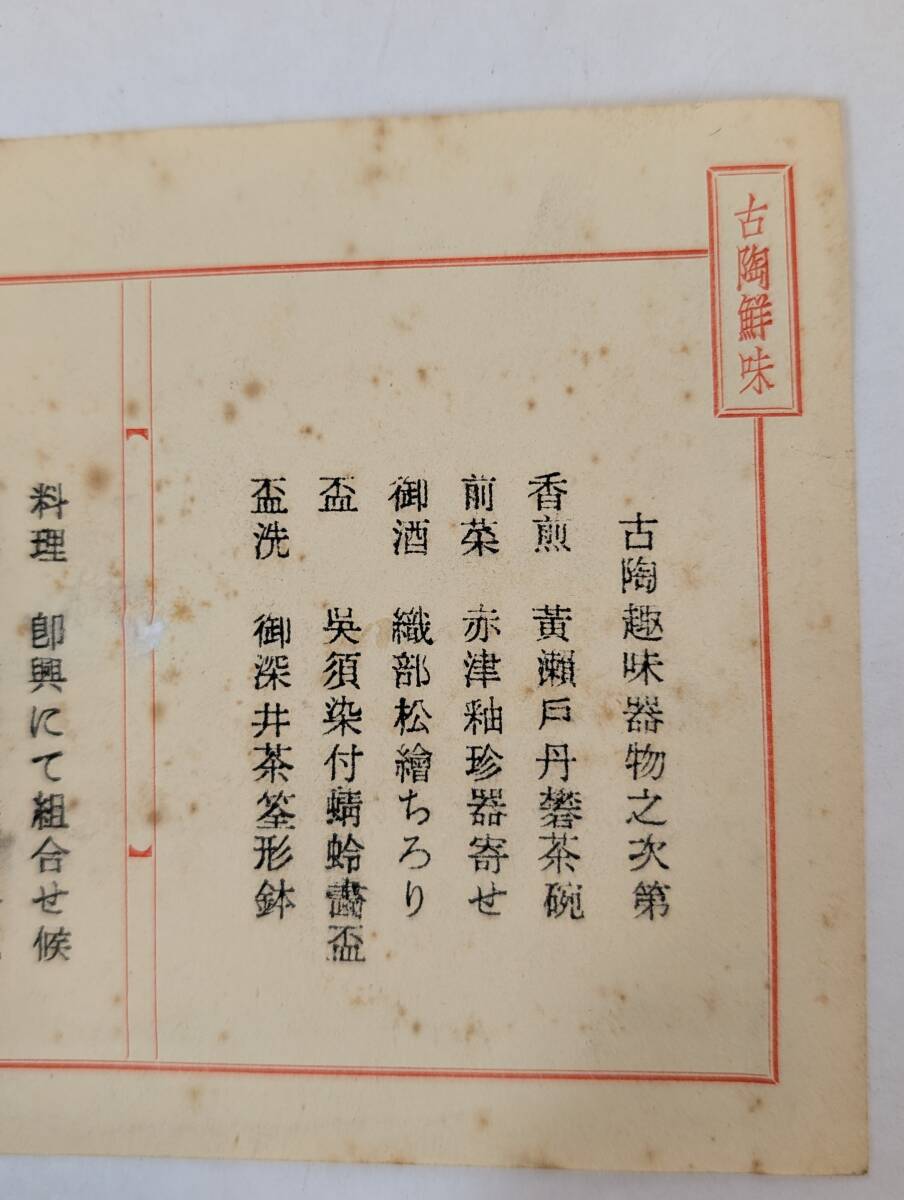 古陶鮮味
古陶趣味器物之次第
香煎　黃瀨戶丹礬茶碗
前菜　赤津釉珍器寄せ
御酒　織部松繪ちろり
盃　吳須染付蜻蛉畵盃
盃洗　御深井茶筌形鉢
料理　卽興にて組合せ候